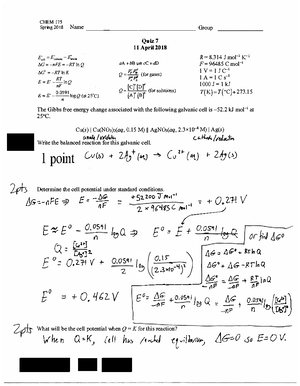 CHEM 175
Spring 2018 Name Group
Quiz 7
11 April 2018
E°cell = E°cathode − E°anode
ΔG = −nFE = −RT ln Q
ΔG° = −RT ln K
E = E° − RT/nF ln Q
E = E° − 0.0591/n log Q (at 25°C)
aA + bB ⇌ cC + dD
(for gases)
Q = [C]^c[D]^d / [A]^a[B]^b (for solutions)
R = 8.314 J mol⁻¹ K⁻¹
F = 96485 C mol⁻¹
1 V = 1 J C⁻¹
1 A = 1 C s⁻¹
1000 J = 1 kJ
T(K) = T(°C) + 273.15
The Gibbs free energy change associated with the following galvanic cell is −52.2 kJ mol⁻¹ at
25°C.
Cu(s) | Cu(NO₃)₂(aq, 0.15 M) || AgNO₃(aq, 2.3×10⁻⁴ M) | Ag(s)
anode/oxidation cathode/reduction
Write the balanced reaction for this galvanic cell.
1 point Cu(s) + 2Ag⁺(aq) → Cu²⁺(aq) + 2Ag(s)
2pts Determine the cell potential under standard conditions.
ΔG = −nFE ⇒ E = −ΔG/nF = +52200 J mol⁻¹ / 2 × 96485 C mol⁻¹ = +0.271 V
E = E° − 0.0591/n log Q ⇒ E° = E + 0.0591/n log Q
or find ΔG°
Q = [Cu²⁺]/[Ag⁺]²
ΔG = ΔG° + RT ln Q
E° = 0.271 V + 0.0591/2 log (0.15/(2.3×10⁻⁴)²)
ΔG° = ΔG − RT ln Q
E° = +0.462 V
2pts What will be the cell potential when Q = K for this reaction?
When Q=K, cell has reached equilibrium, ΔG=0 so E=0 V.